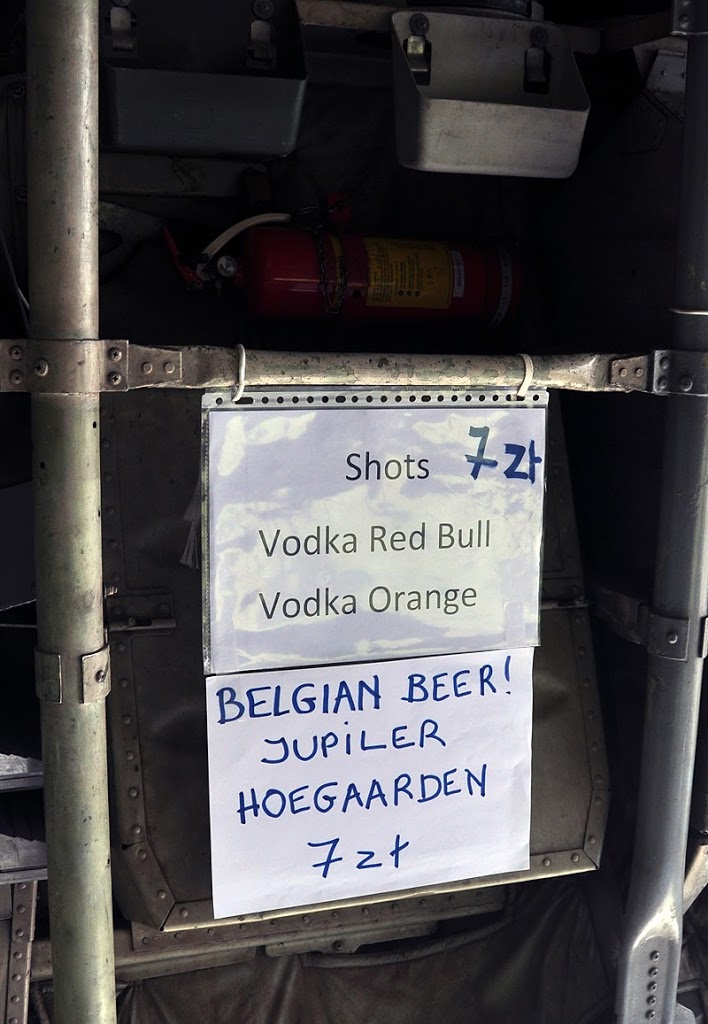 Shots 7 zł
Vodka Red Bull
Vodka Orange
BELGIAN BEER!
JUPiLER
HOEGAARDEN
7 zł